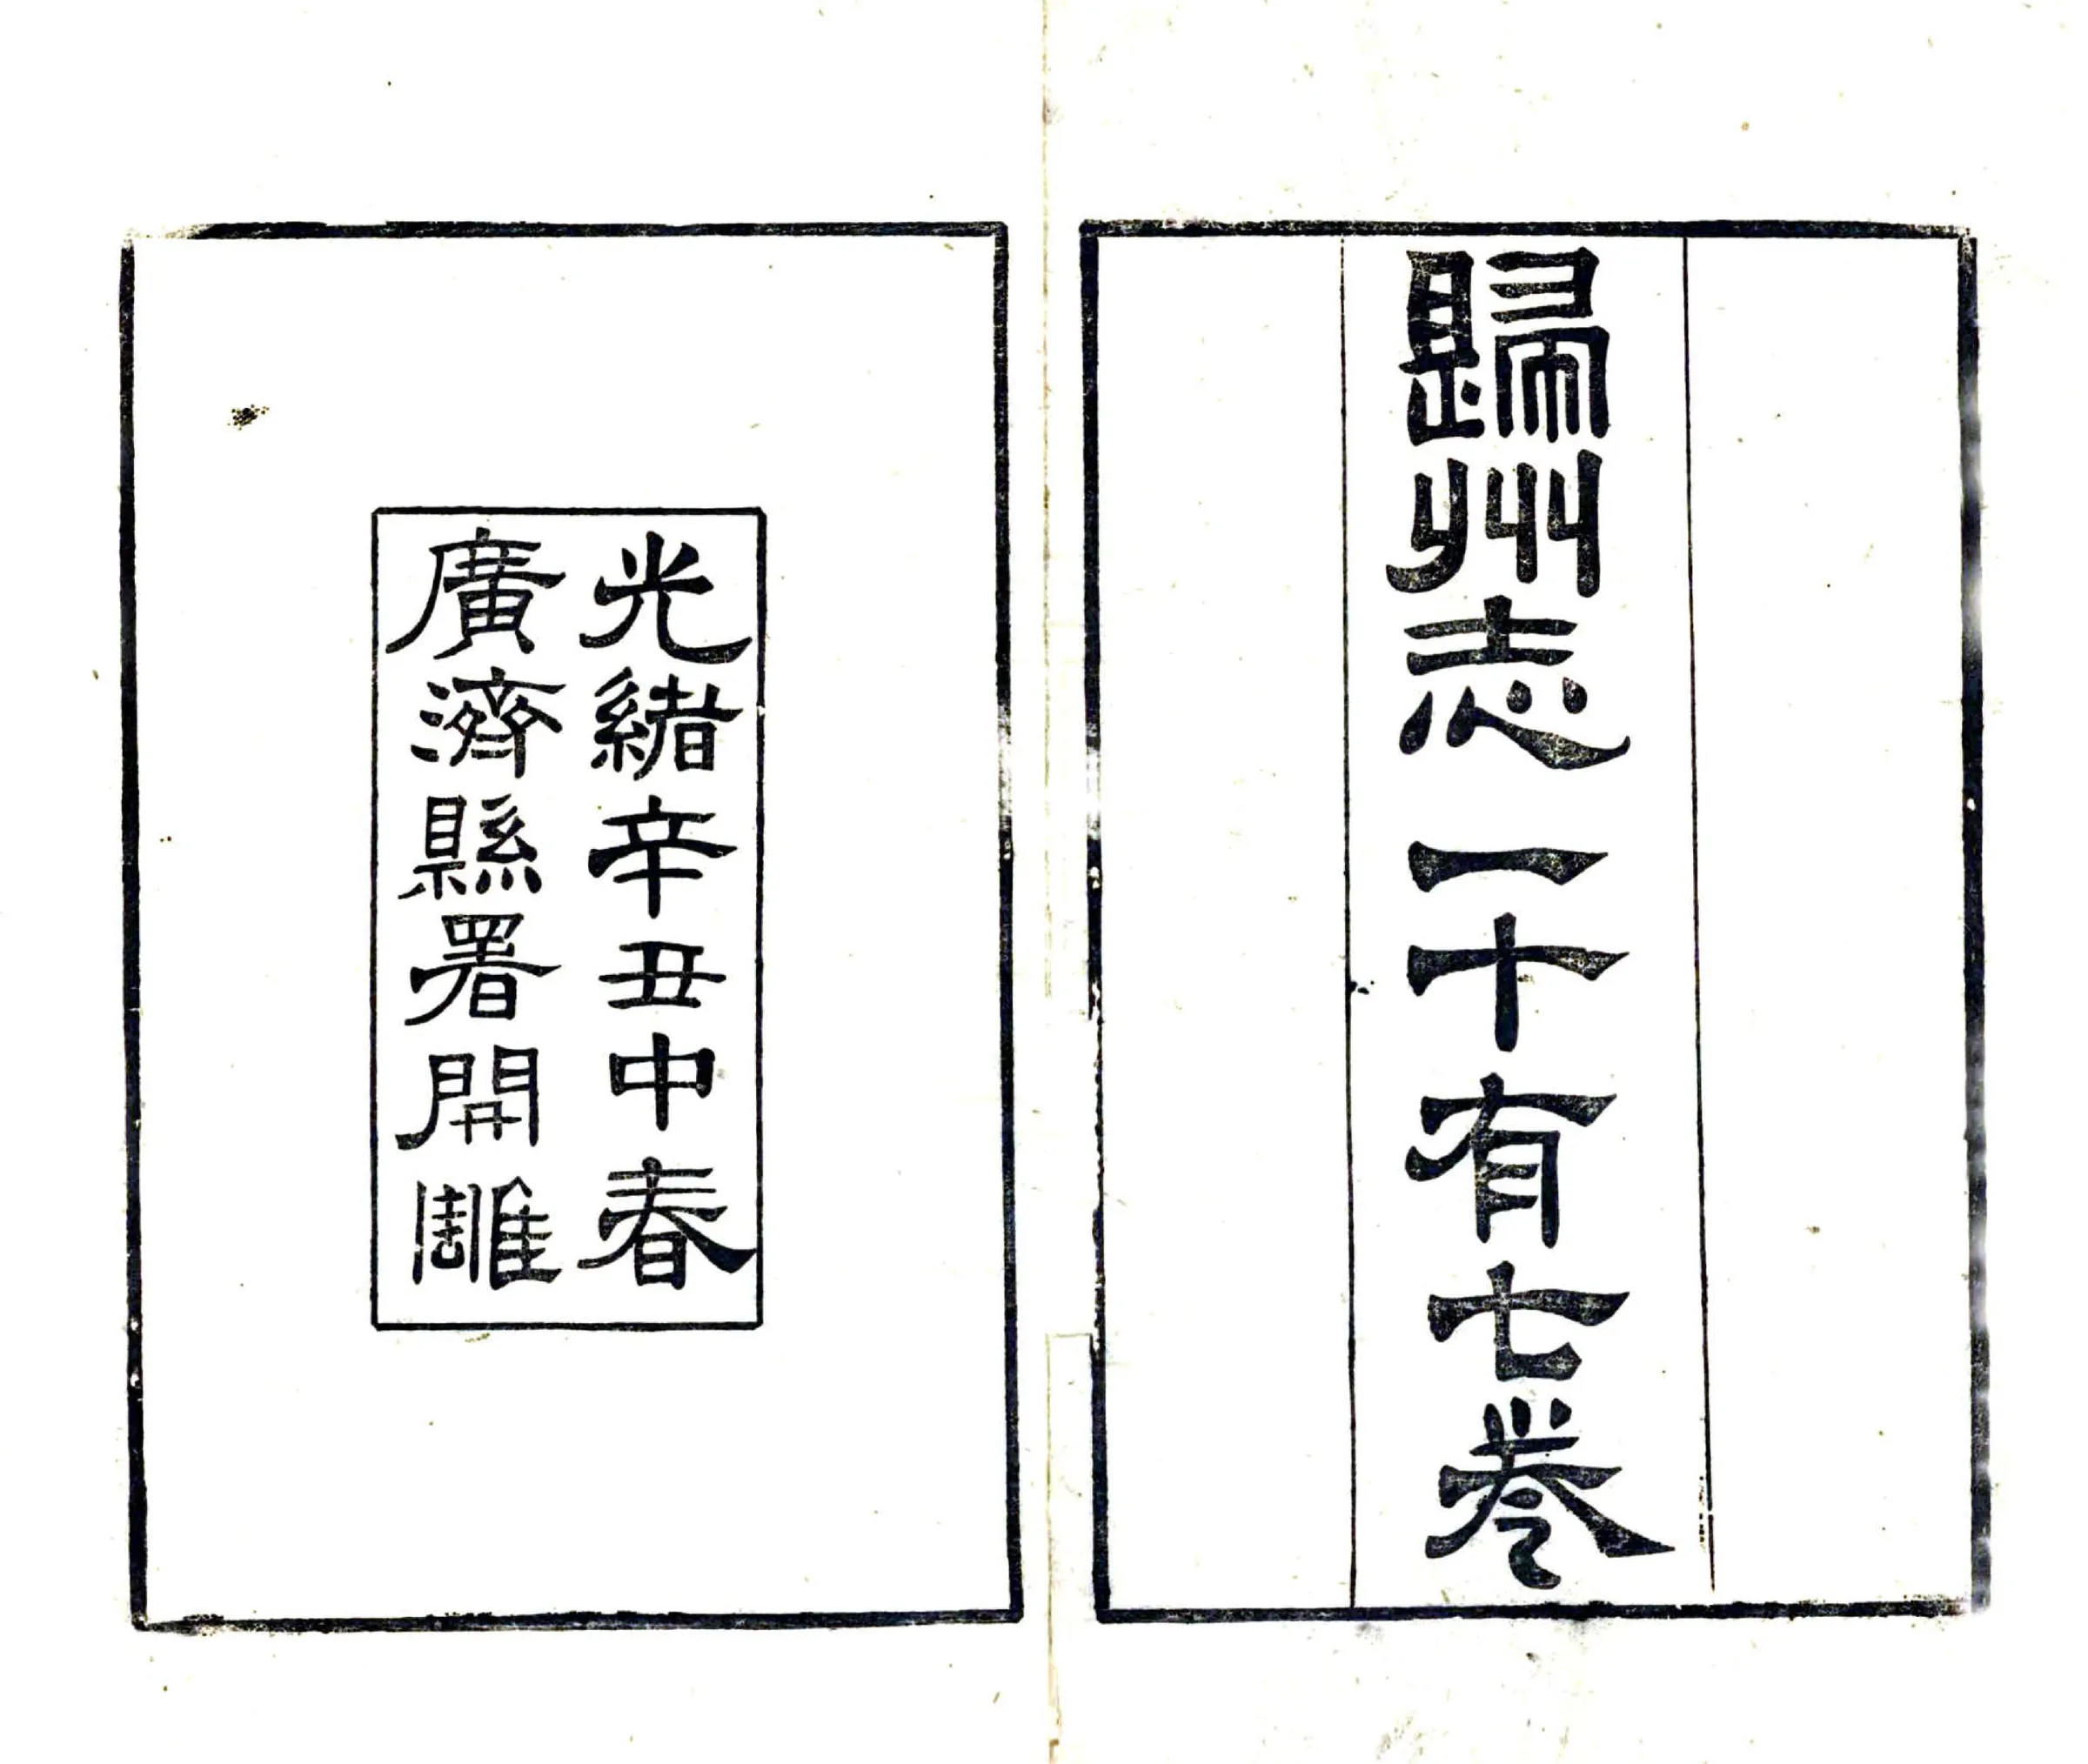 歸州志一十有七卷
光緒辛丑中春
廣濟縣署開雕